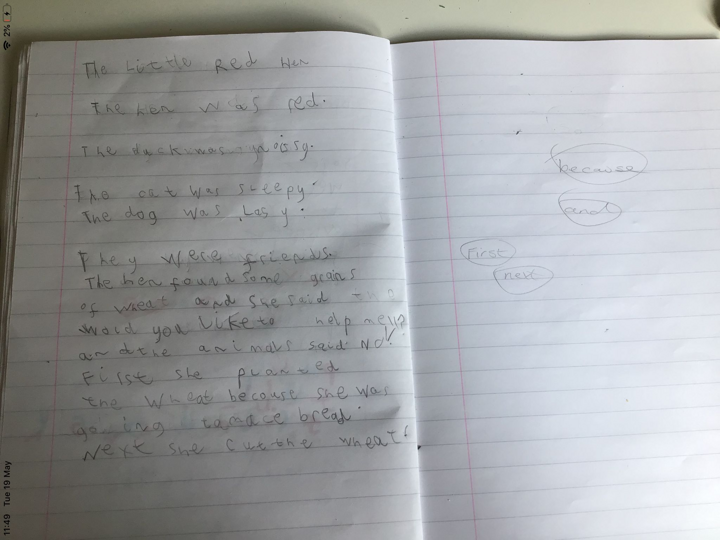 The Little Red Hen
The hen was red.
The duck was noisy.
The cat was sleepy.
The dog was Lasy.
They were friends.
The hen found some grains
of wheat and she said
wold you Like to help me!!?
and the animals said No!
First she planted
the wheat because she was
going to mace bread.
Next she cut the wheat
because
and
First
next
11:49 Tue 19 May
2%